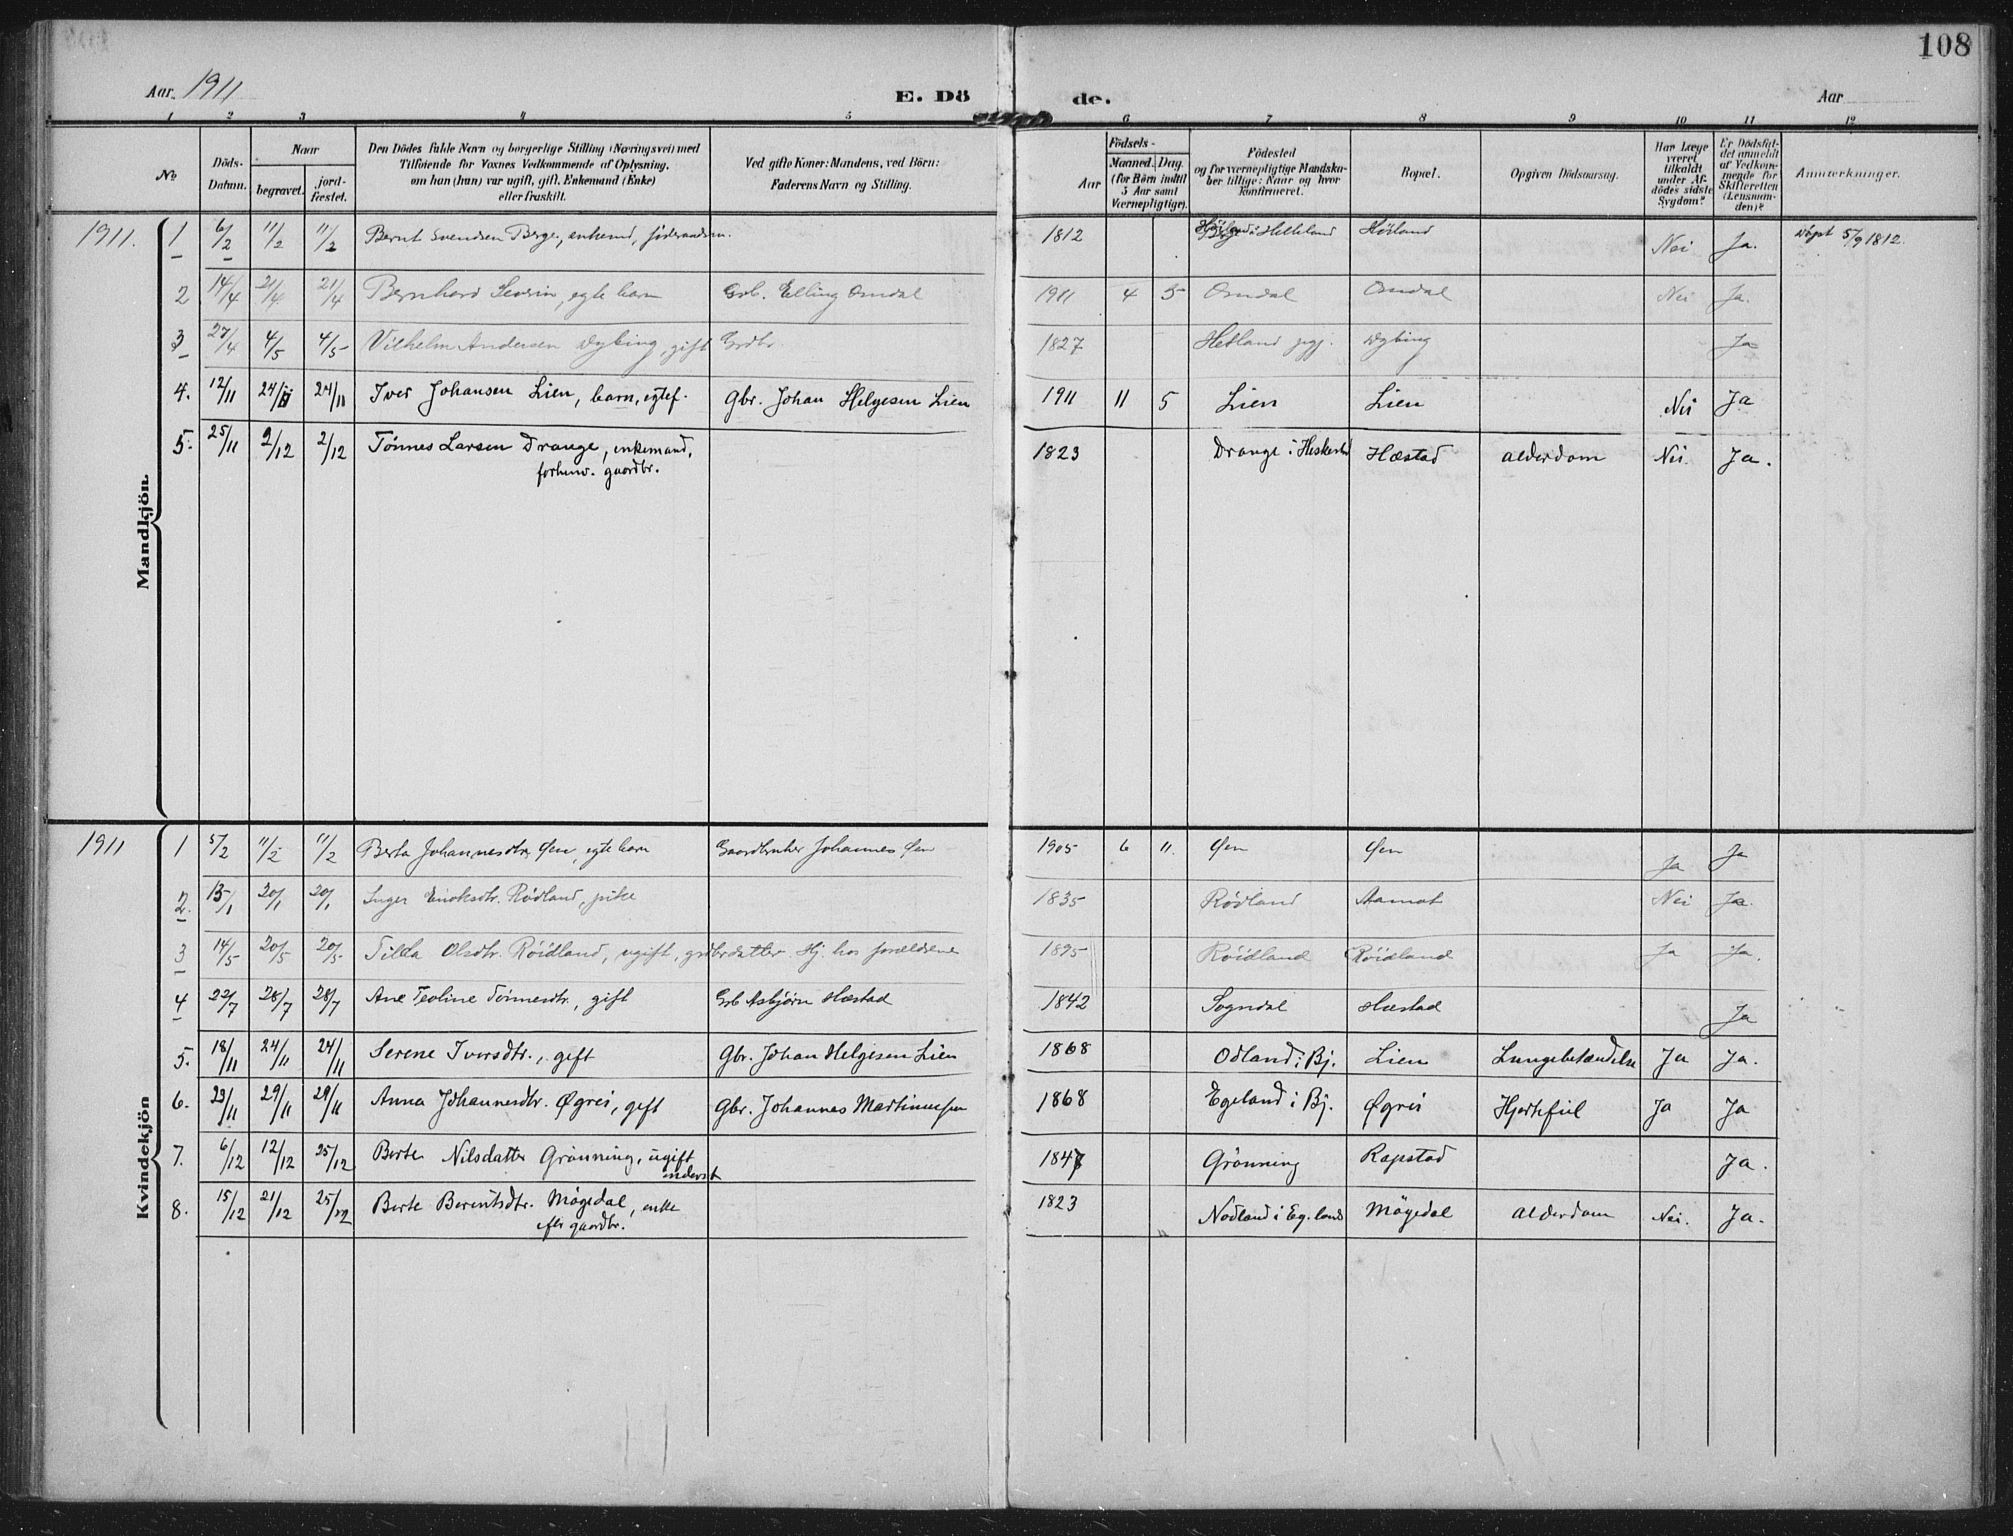 108
Aar. 1911
E. Dö
de.
Aar
1 2 3 4 5 6 7 8 9 10 11 12
No.
Döds-Datum.
Naar
begravet.
jord-fæstet.
Den Dödes fulde Navn og borgerlige Stilling (Næringsvei) med
Tilföiende for Voxnes Vedkommende af Oplysning,
om han (hun) var ugift, gift, Enkemand (Enke)
eller fraskilt.
Ved gifte Koner: Mandens, ved Börn:
Faderens Navn og Stilling.
Födsels-
Aar
Maaned. Dag.
(for Börn indtil
5 Aar samt
Værnepligtige).
Födested
og for værnepligtige Mandska-
ber tillige: Naar og hvor
konfirmeret.
Bopæl.
Opgiven Dödsaarsag.
Har Læge
været
tilkaldt
under Af-
dödes sidste
Sygdom?
Er Dödsfal-
det anmeldt
af Vedkom-
mende for
Skifteretten
(Lensman-
den)?
Anmærkninger.
Mandkjön.
1911. 1 6/2 11/2 11/2 Bernt Svendsen Berge, enkemd, föderaadsm. 1812 Helleland Höiland Nei Ja. Döpt 5/9 1812.
2 14/4 21/4 21/4 Bernhard Severin, egte barn Grb. Elling Omdal 1911 4 5 Omdal Omdal Nei Ja.
3 27/4 4/5 4/5 Vilhelm Andersen Dybing, gift Grdbr. 1827 Hetland pgj. Dybing Ja
4. 12/11 24/11 24/11 Iver Johansen Lien, barn, egtef. Gbr. Johan Helgesen Lien 1911 11 5 Lien Lien Nei Ja
5. 25/11 2/12 2/12 Tönnes Larsen Drange, enkemand,
forhenv. gaardbr. 1823 Drange i Heskestad Hæstad Alderdom Nei. Ja.
Kvindekjön
1911 1 5/2 11/2 11/2 Berta Johannesdtr. Øen, egte barn Gaardbruker Johannes Øen 1905 6 11. Øen Øen Ja Ja
2. 13/1 20/1 20/1 Inger Enoksdtr. Rödland, pike 1835 Rödland Aamot Nei Ja.
3 14/5 20/5 20/5 Tilla Olsdtr. Röidland, ugift, grdbrdatter. Hj. hos forældrene 1895 Röidland Röidland Ja Ja.
4 22/7 28/7 28/7 Ane Teoline Tönnesdtr., gift Grb Asbjörn Hæstad 1842 Sogndal Hæstad Ja
5. 18/11 24/11 24/11 Serene Iversdtr., gift Gbr. Johan Helgesen Lien 1868 Odland i Bj. Lien Lungebetændelse Ja Ja.
6. 23/11 29/11 29/11 Anna Johannesdtr. Øgrei, gift Gbr. Johannes Martinussen 1868 Egeland i Bj. Øgrei Hjertefeil Ja Ja
7. 6/12 12/12 25/12 Berte Nilsdatter Grönning, ugift
inderst 1847 Grönning Rapstad Ja.
8. 15/12 21/12 25/12 Berte Berentsdtr. Mögedal, enke
efter gaardbr. 1823 Nodland i Eg.land Mögedal Alderdom Nei. Ja.